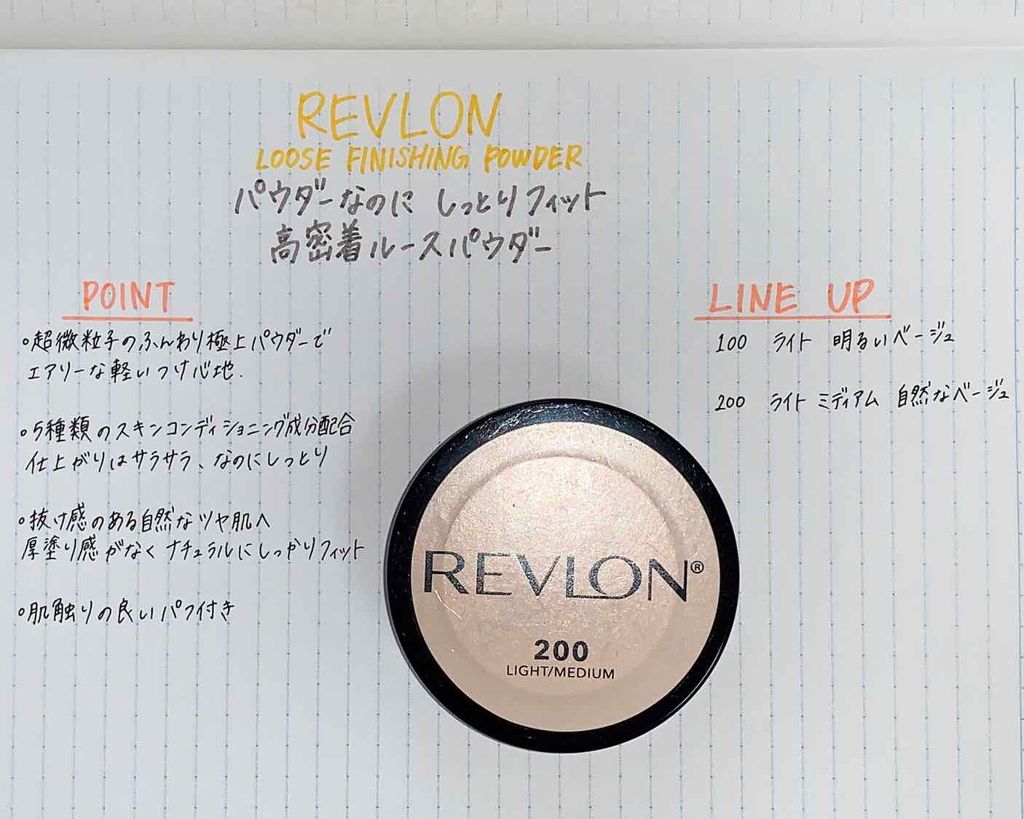 REVLON
LOOSE FINISHING POWDER
パウダーなのに しっとりフィット
高密着ルースパウダー
POINT
○超微粒子のふんわり極上パウダーで
エアリーな軽いつけ心地.
○5種類のスキンコンディショニング成分配合
仕上がりはサラサラ、なのにしっとり
○抜け感のある自然なツヤ肌へ
厚塗り感がなくナチュラルにしっかりフィット
○肌触りの良いパフ付き
LINE UP
100 ライト 明るいベージュ
200 ライト ミディアム 自然なベージュ
REVLON®
200
LIGHT/MEDIUM